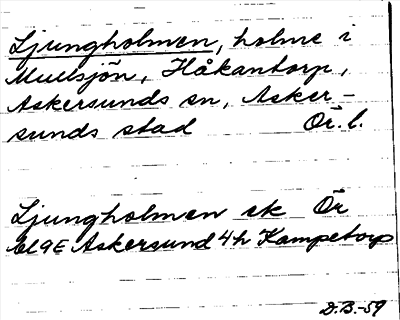 Ljungholmen, holme i
Mullsjön, Håkantorp,
Askersunds sn, Asker-
sunds stad Ör. l.
Ljungholmen ek Ör
bl 9E Askersund 4h Kampetorp
D.B.-59